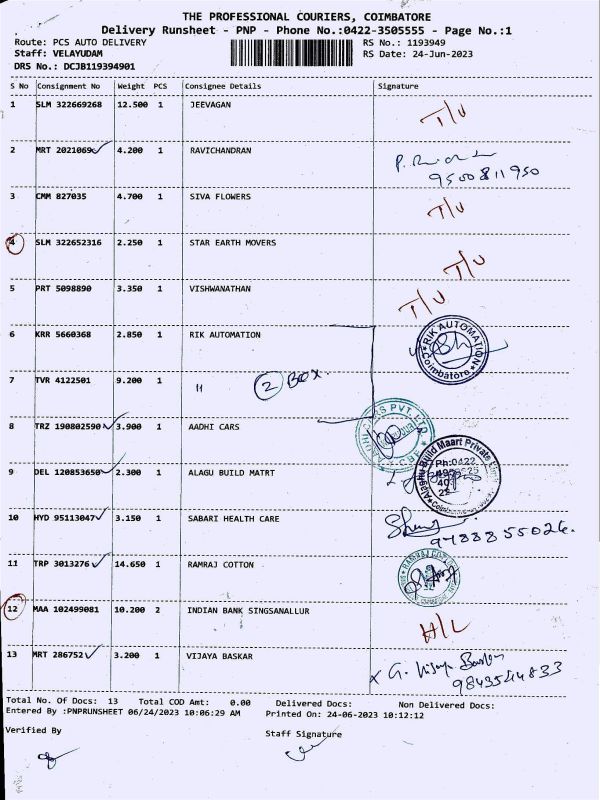 THE PROFESSIONAL COURIERS, COIMBATORE
Delivery Runsheet - PNP - Phone No.:0422-3505555 - Page No.:1
Route: PCS AUTO DELIVERY RS No.: 1193949
Staff: VELAYUDAM RS Date: 24-Jun-2023
DRS No.: DCJB119394901
S No Consignment No Weight PCS Consignee Details Signature
1 SLM 322669268 12.500 1 JEEVAGAN T/U
2 MRT 2021069 4.200 1 RAVICHANDRAN
9500811950
3 CMM 827035 4.700 1 SIVA FLOWERS T/U
4 SLM 322652316 2.250 1 STAR EARTH MOVERS T/U
5 PRT 5098890 3.350 1 VISHWANATHAN T/U
6 KRR 5660368 2.850 1 RIK AUTOMATION RIK AUTOMATION Coimbatore
7 TVR 4122501 9.200 1 " 2 BOX.
8 TRZ 190802590 3.900 1 AADHI CARS AADHI CARS PVT. LTD CBE
9 DEL 120853650 2.300 1 ALAGU BUILD MATRT Alaghu Build Maart Private Ph:0422
10 HYD 95113047 3.150 1 SABARI HEALTH CARE
9488855026.
11 TRP 3013276 14.650 1 RAMRAJ COTTON RAMRAJ COTTON
12 MAA 102499081 10.200 2 INDIAN BANK SINGSANALLUR H/L
13 MRT 286752 3.200 1 VIJAYA BASKAR x G. Vijaya Baskar
9843544833
Total No. Of Docs: 13 Total COD Amt: 0.00 Delivered Docs: Non Delivered Docs:
Entered By :PNPRUNSHEET 06/24/2023 10:06:29 AM Printed On: 24-06-2023 10:12:12
Verified By Staff Signature